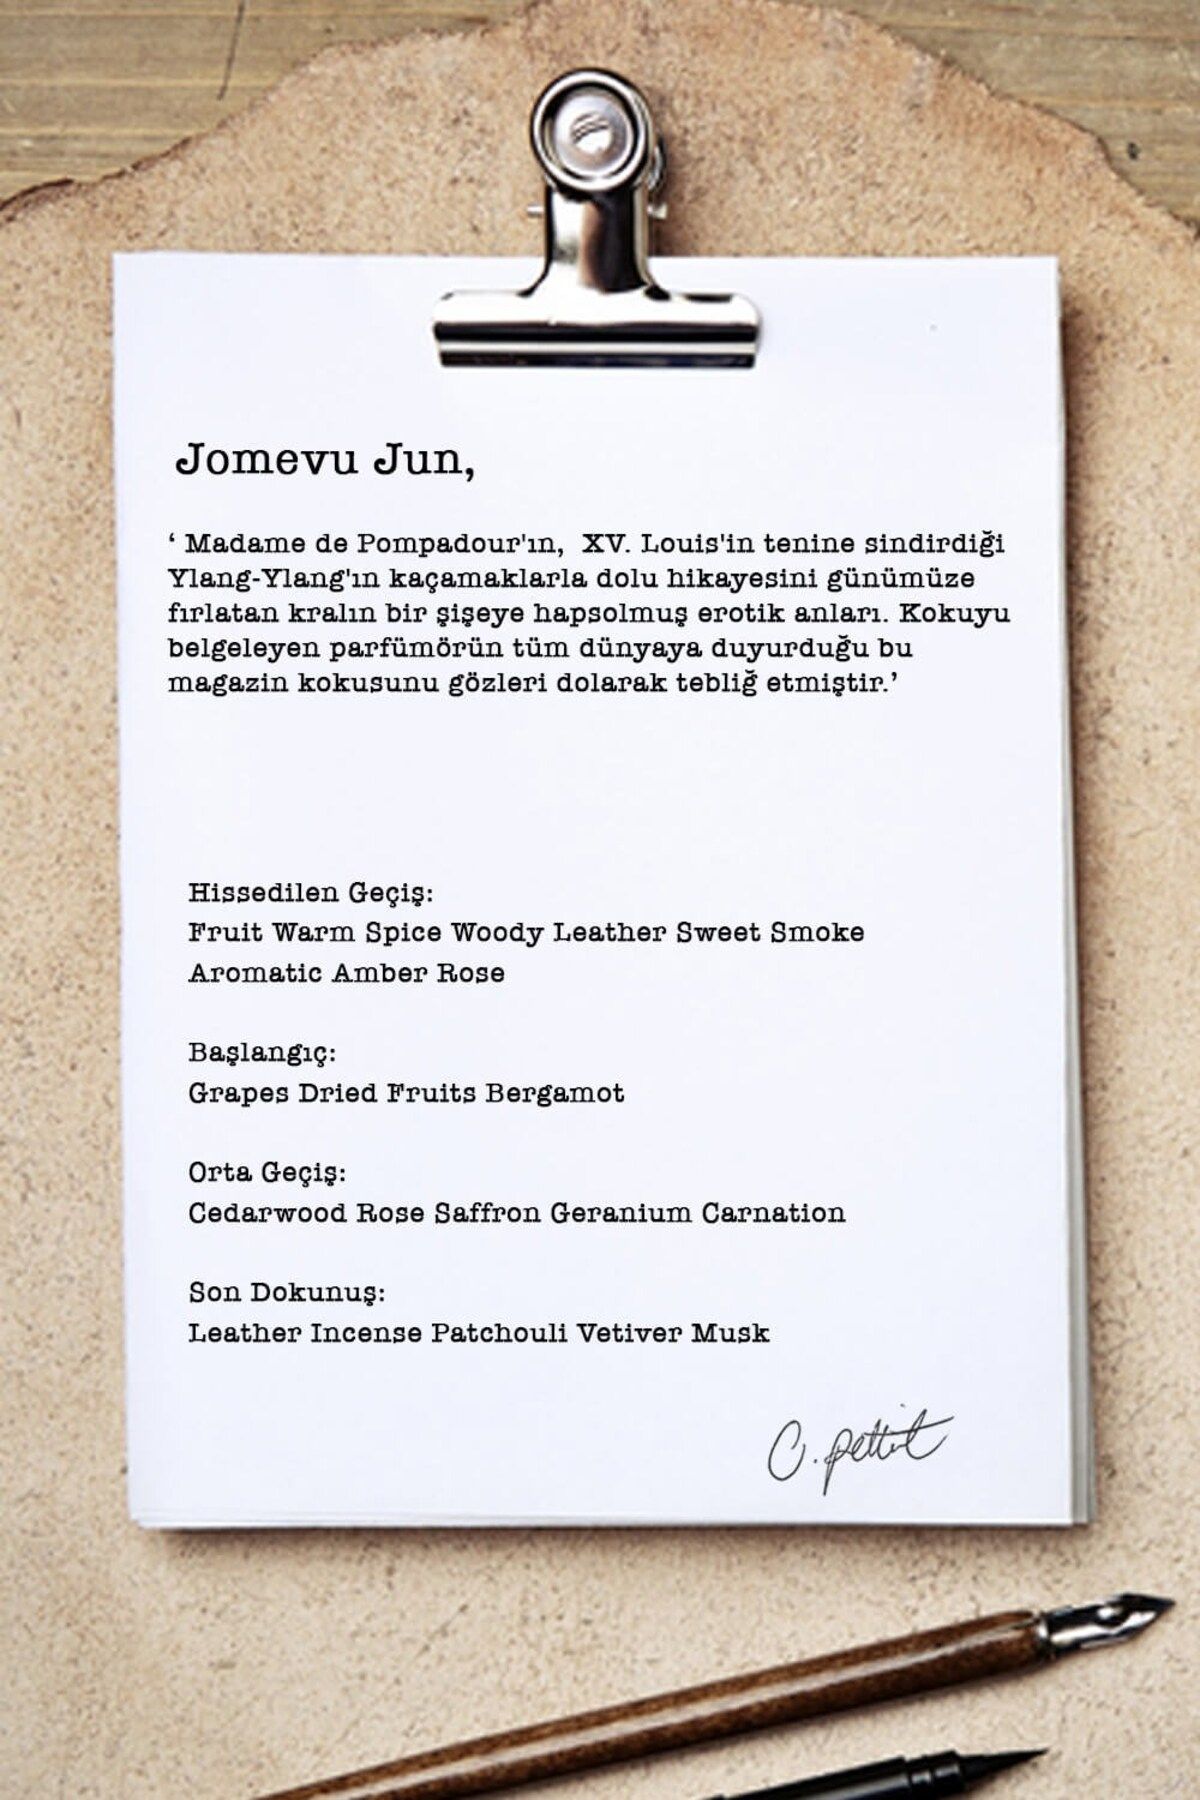 Jomevu Jun,
‘ Madame de Pompadour'ın, XV. Louis'in tenine sindirdiği
Ylang-Ylang'ın kaçamaklarla dolu hikayesini günümüze
fırlatan kralın bir şişeye hapsolmuş erotik anları. Kokuyu
belgeleyen parfümörün tüm dünyaya duyurduğu bu
magazin kokusunu gözleri dolarak tebliğ etmiştir.’
Hissedilen Geçiş:
Fruit Warm Spice Woody Leather Sweet Smoke
Aromatic Amber Rose
Başlangıç:
Grapes Dried Fruits Bergamot
Orta Geçiş:
Cedarwood Rose Saffron Geranium Carnation
Son Dokunuş:
Leather Incense Patchouli Vetiver Musk
C. pettit